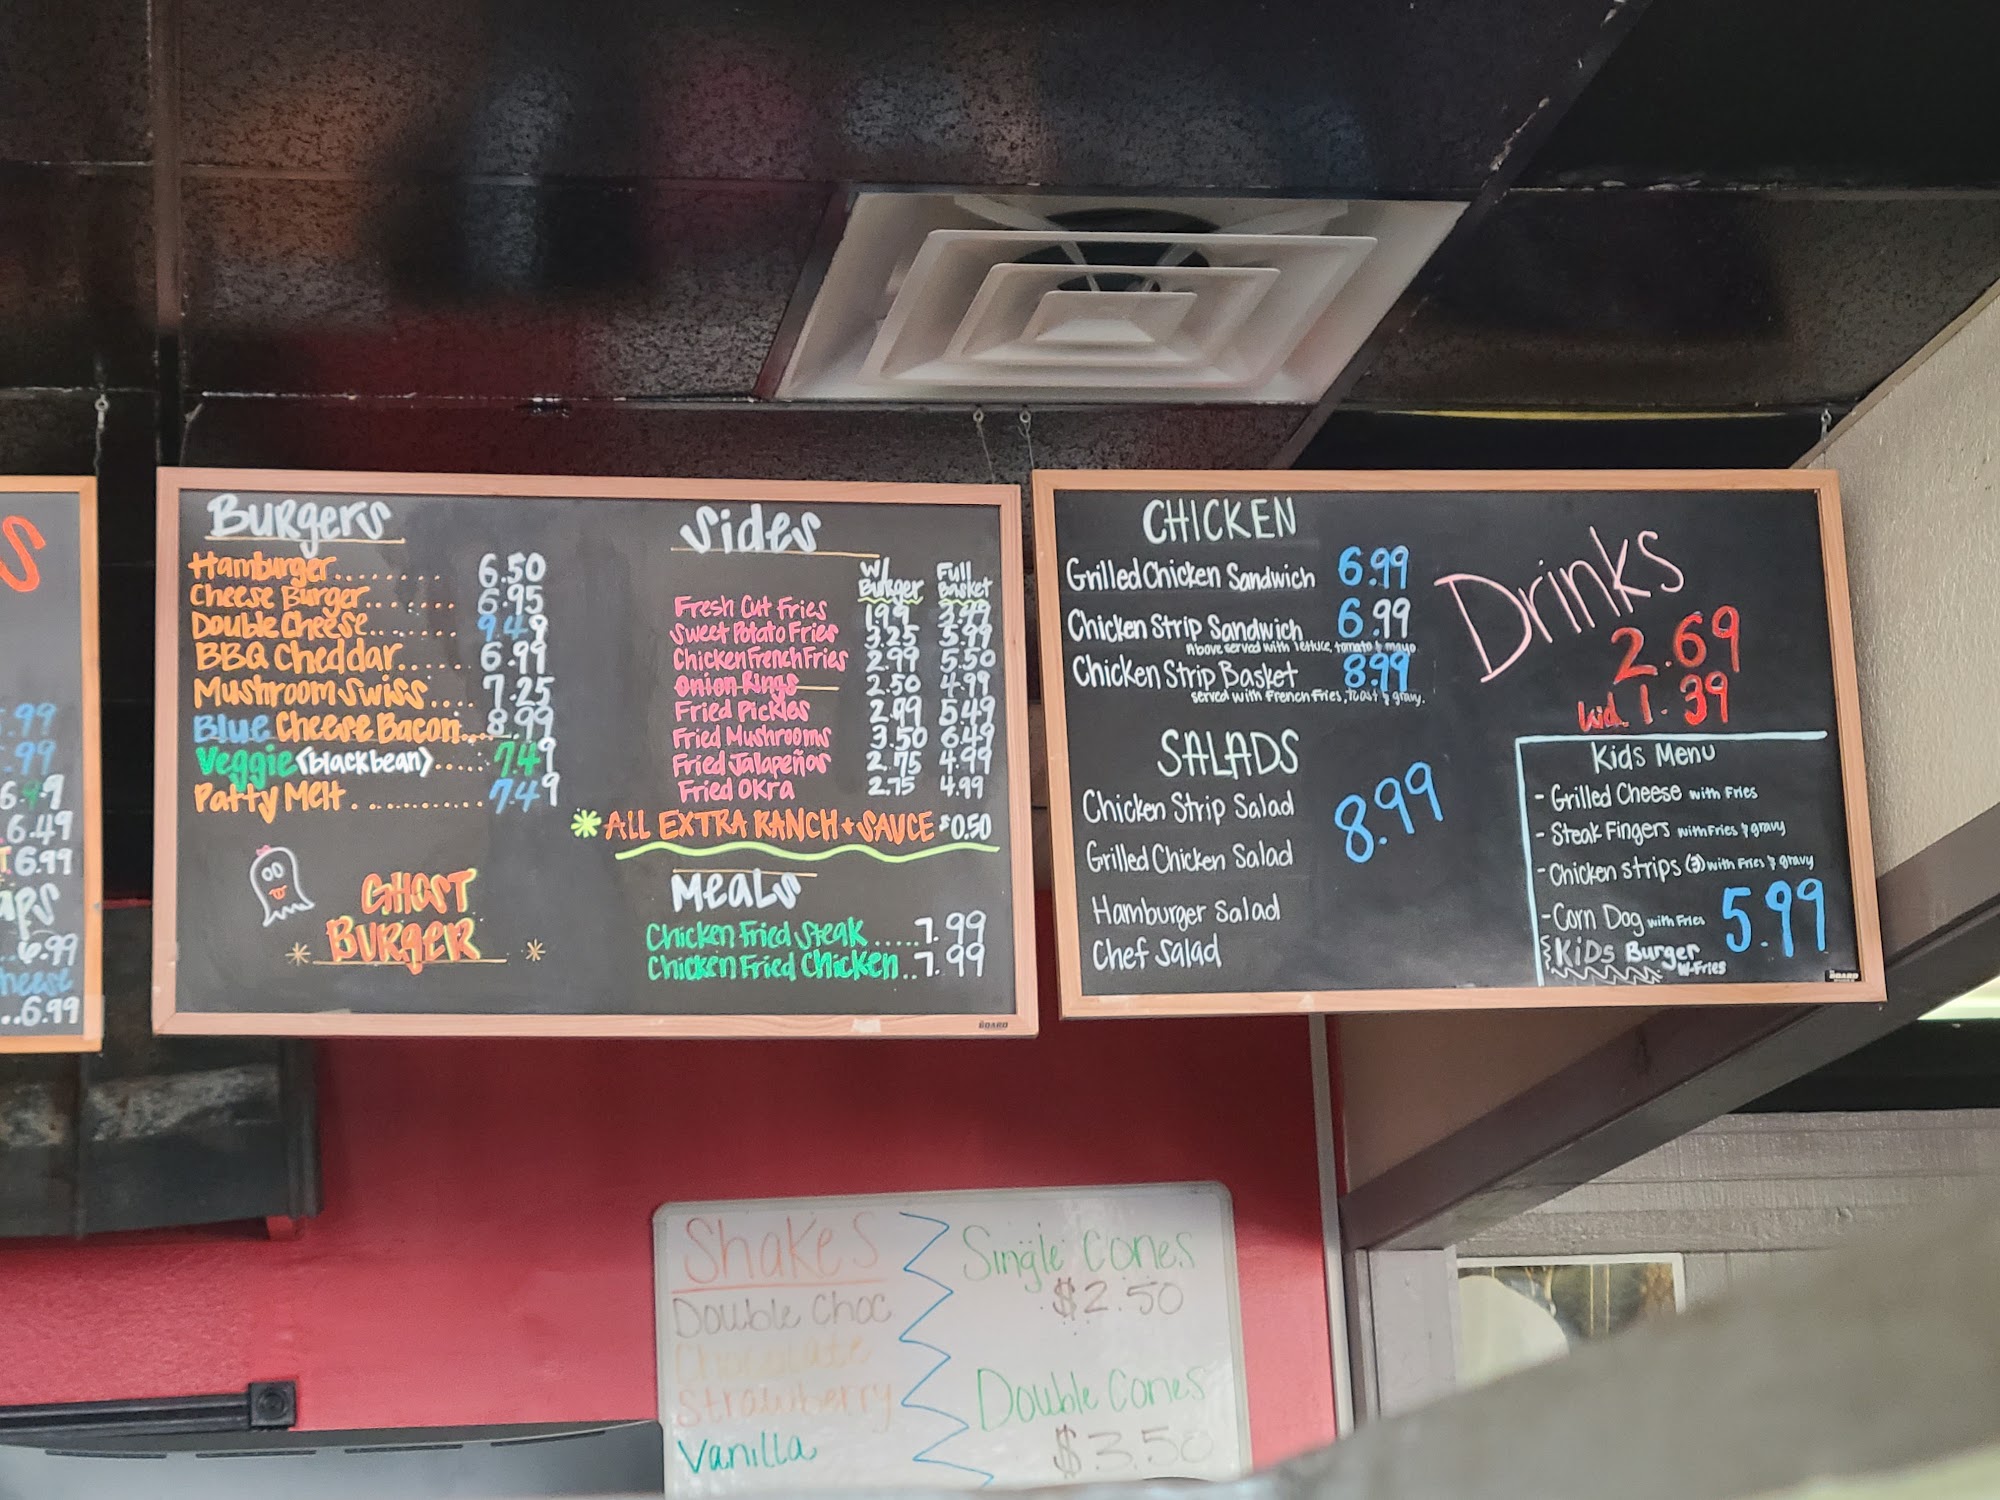 S
.99
.99
6.49
6.49
6.99
aps
..6.99
heese
..6.99
Burgers
Hamburger....... 6.50
Cheese Burger....... 6.95
Double Cheese....... 9.49
BBQ Cheddar..... 6.99
Mushroom Swiss.... 7.25
Blue Cheese Bacon... 8.99
Veggie (black bean)..... 7.49
Patty Melt........... 7.49
GHOST
BURGER
Sides
W/ Burger Full Basket
Fresh Cut Fries 1.99 3.99
Sweet Potato Fries 3.25 5.99
Chicken French Fries 2.99 5.50
Onion Rings 2.50 4.99
Fried Pickles 2.99 5.49
Fried Mushrooms 3.50 6.49
Fried Jalapeños 2.75 4.99
Fried Okra 2.75 4.99
* ALL EXTRA RANCH + SAUCE $0.50
Meals
Chicken Fried Steak.....7.99
Chicken Fried Chicken..7.99
THE BOARD
CHICKEN
Grilled Chicken Sandwich 6.99
Chicken Strip Sandwich 6.99
Above served with lettuce, tomato & mayo
Chicken Strip Basket 8.99
served with French Fries, Toast & gravy.
SALADS
Chicken Strip Salad
8.99
Grilled Chicken Salad
Hamburger Salad
Chef Salad
Drinks
2.69
kid 1.39
Kids Menu
- Grilled Cheese with Fries
- Steak Fingers with Fries & gravy
- Chicken strips (3) with Fries & gravy
- Corn Dog with Fries
5.99
KiDs Burger
W-Fries
Shakes
Double Choc
Chocolate
Strawberry
Vanilla
Single Cones
$2.50
Double Cones
$3.50